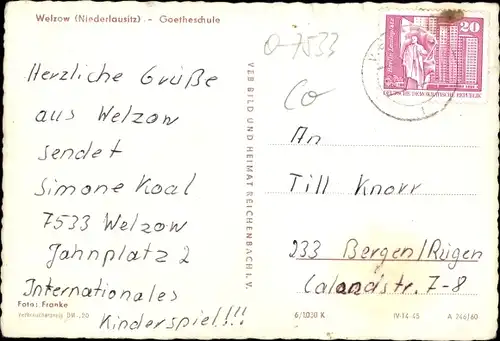 Welzow (Niederlausitz) - Goetheschule
O-7533
Co
20
DEUTSCHE DEMOKRATISCHE REPUBLIK
Herzliche Grüße
aus Welzow
sendet
Simone Koal
7533 Welzow
Jahnplatz 2
Internationales
Kinderspiel!!!
Foto: Franke
Verbraucherpreis DM -,20
VEB BILD UND HEIMAT REICHENBACH I. V.
An
Till Knorr
233 Bergen/Rügen
Calandstr. 7-8
6/1030 K
IV-14-45
A 246/60